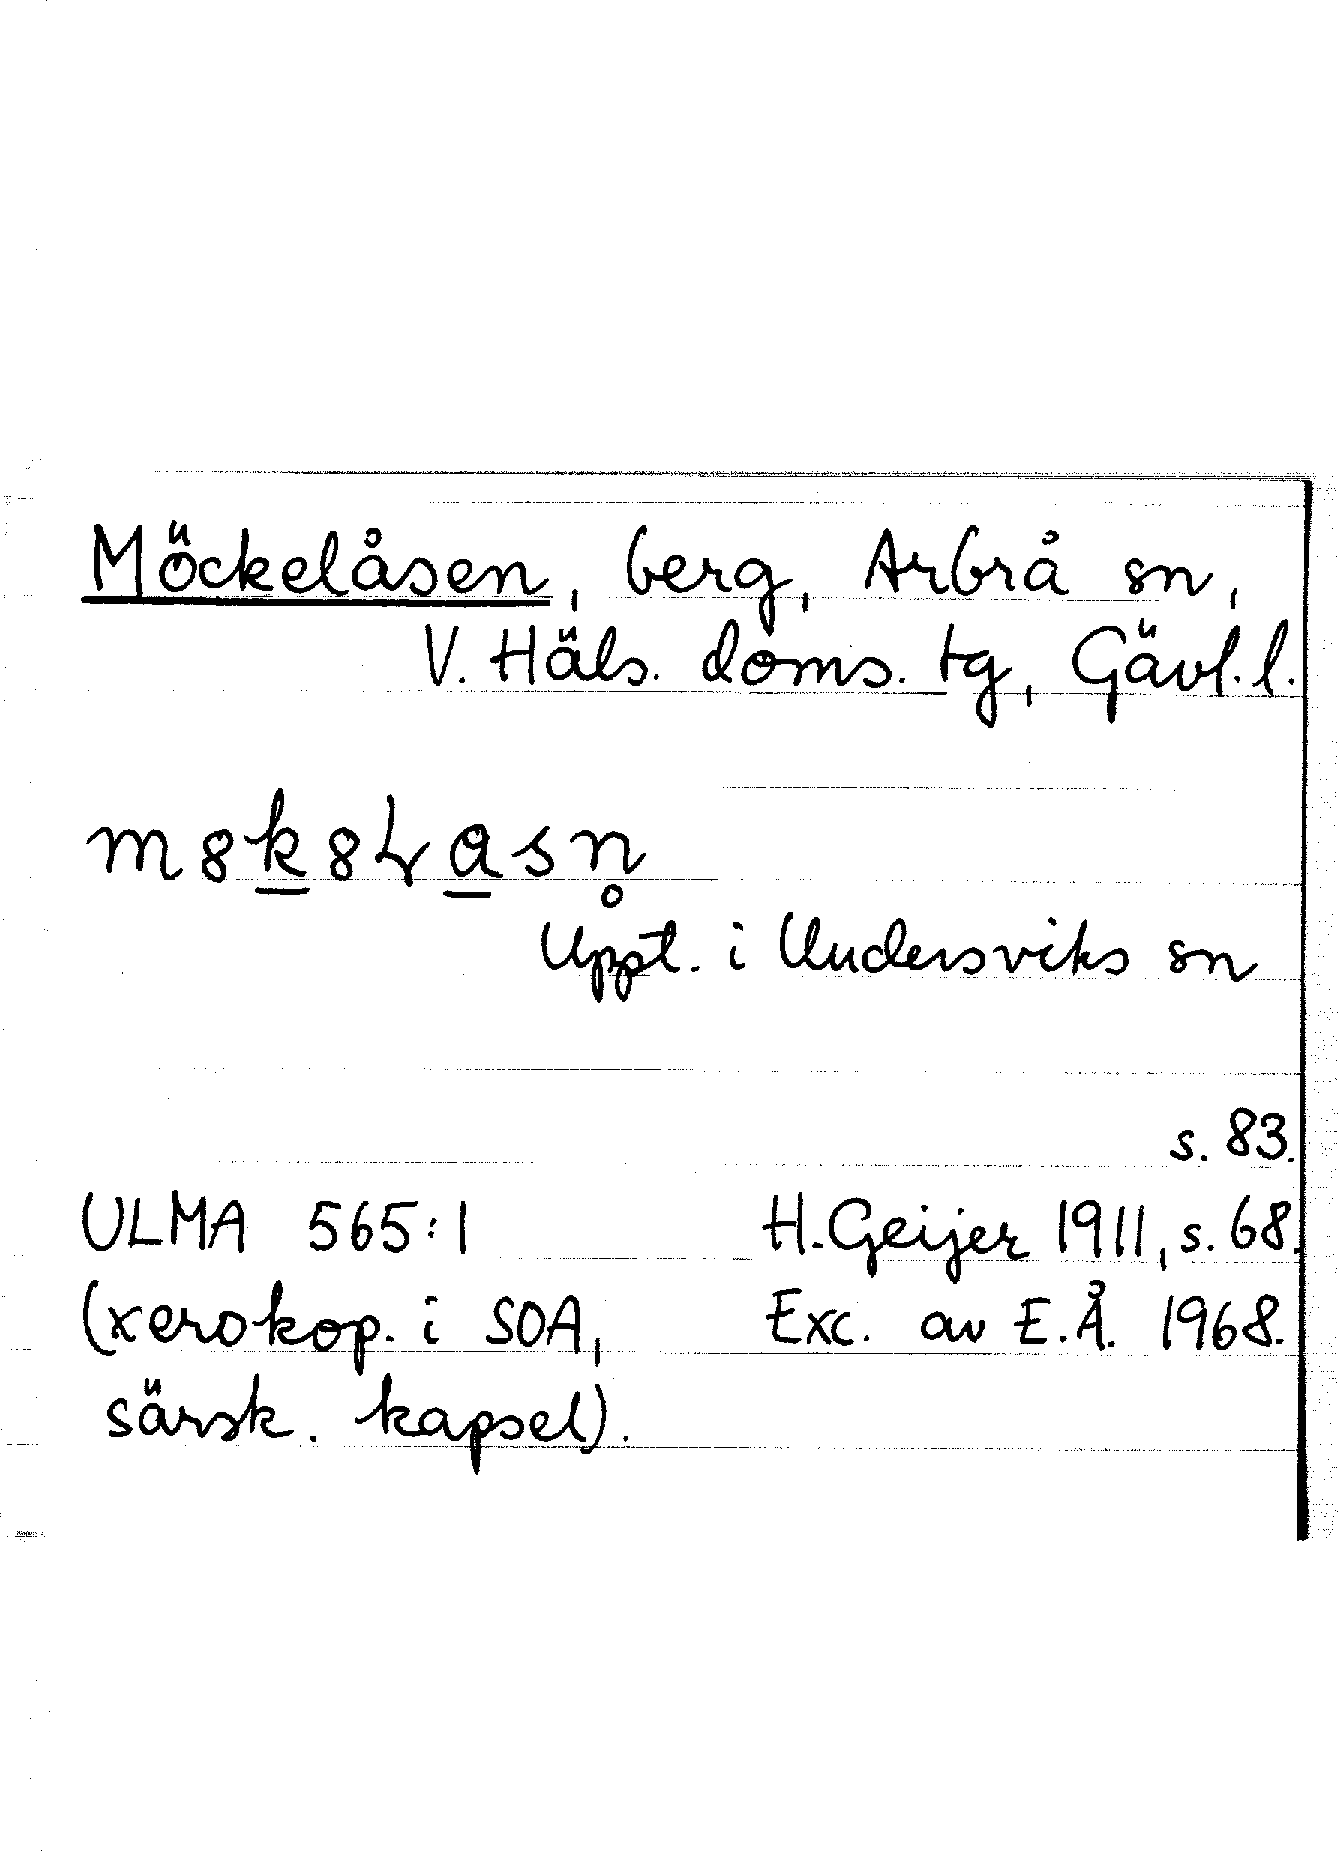 Möckelåsen, berg, Arbrå sn,
V. Häls. doms. tg, Gävl. l.
m8k8Ꞁasn̥
Uppt. i Undersviks sn
s. 83.
ULMA 565:1 H. Geijer 1911, s. 68.
(xerokop. i SOA, Exc. av E.Å. 1968.
särsk. kapsel).